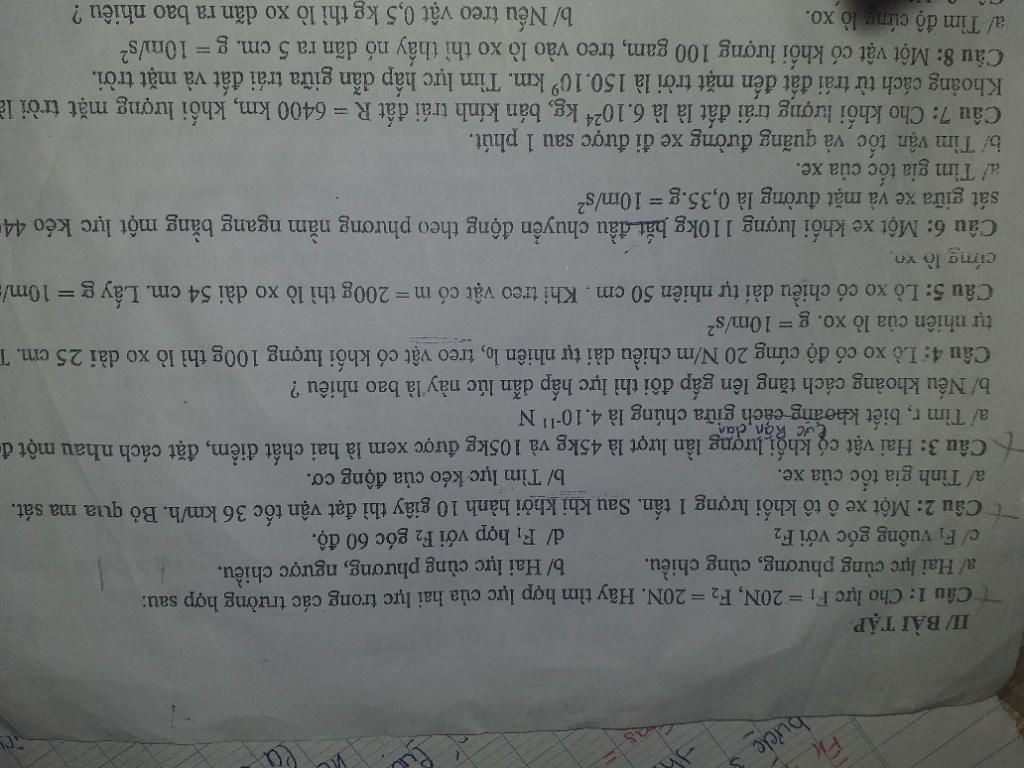 II/ BÀI TẬP
Câu 1: Cho lực F₁ = 20N, F₂ = 20N. Hãy tìm hợp lực của hai lực trong các trường hợp sau:
a/ Hai lực cùng phương, cùng chiều. b/ Hai lực cùng phương, ngược chiều.
c/ F₁ vuông góc với F₂ d/ F₁ hợp với F₂ góc 60 độ.
Câu 2: Một xe ô tô khối lượng 1 tấn. Sau khi khởi hành 10 giây thì đạt vận tốc 36 km/h. Bỏ qua ma sát.
a/ Tính gia tốc của xe. b/ Tìm lực kéo của động cơ.
Câu 3: Hai vật có khối lượng lần lượt là 45kg và 105kg được xem là hai chất điểm, đặt cách nhau một
lực hấp dẫn
a/ Tìm r, biết khoảng cách giữa chúng là 4.10⁻¹¹ N
b/ Nếu khoảng cách tăng lên gấp đôi thì lực hấp dẫn lúc này là bao nhiêu ?
Câu 4: Lò xo có độ cứng 20 N/m chiều dài tự nhiên l₀, treo vật có khối lượng 100g thì lò xo dài 25 cm.
tự nhiên của lò xo. g = 10m/s²
Câu 5: Lò xo có chiều dài tự nhiên 50 cm . Khi treo vật có m = 200g thì lò xo dài 54 cm. Lấy g = 10m/
cứng lò xo.
Câu 6: Một xe khối lượng 110kg bắt đầu chuyển động theo phương nằm ngang bằng một lực kéo 44
sát giữa xe và mặt đường là 0,35.g = 10m/s²
a/ Tìm gia tốc của xe.
b/ Tìm vận tốc và quãng đường xe đi được sau 1 phút.
Câu 7: Cho khối lượng trái đất là là 6.10²⁴ kg, bán kính trái đất R = 6400 km, khối lượng mặt trời là
Khoảng cách từ trái đất đến mặt trời là 150.10⁹ km. Tìm lực hấp dẫn giữa trái đất và mặt trời.
Câu 8: Một vật có khối lượng 100 gam, treo vào lò xo thì thấy nó dãn ra 5 cm. g = 10m/s²
a/ Tìm độ cứng lò xo. b/ Nếu treo vật 0,5 kg thì lò xo dãn ra bao nhiêu ?